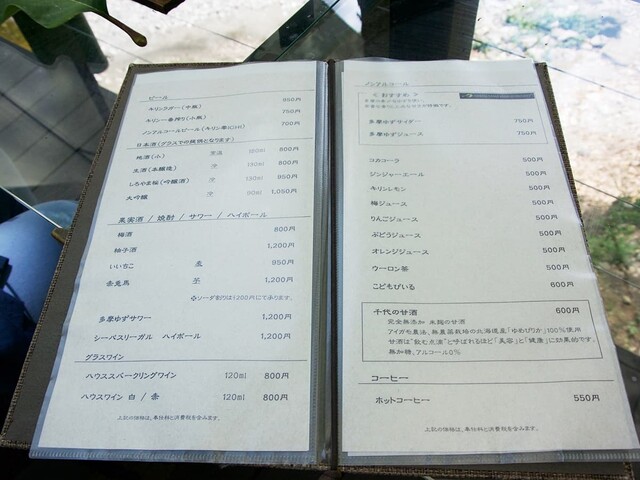 ビール
キリンラガー(中瓶) 850円
キリン一番搾り(小瓶) 750円
ノンアルコールビール(キリン零ICHI) 700円
日本酒(グラスでの提供となります)
地酒(小) 常温 120ml 900円
生酒(本醸造) 冷 130ml 800円
しろやま桜(吟醸酒) 冷 130ml 950円
大吟醸 冷 90ml 1,050円
果実酒 / 焼酎 / サワー / ハイボール
梅酒 800円
柚子酒 1,200円
いいちこ 麦 950円
赤兎馬 芋 1,200円
✧ソーダ割りは1200円にて承ります。
多摩ゆずサワー 1,200円
シーバスリーガル ハイボール 1,200円
グラスワイン
ハウススパークリングワイン 120ml 800円
ハウスワイン 白 / 赤 120ml 800円
上記の価格は、奉仕料と消費税を含みます。
ノンアルコール
< おすすめ >
多摩ゆずサイダー 750円
多摩ゆずジュース 750円
コカコーラ 500円
ジンジャーエール 500円
キリンレモン 500円
梅ジュース 500円
りんごジュース 500円
ぶどうジュース 500円
オレンジジュース 500円
ウーロン茶 500円
こどもびいる 600円
千代の甘酒 600円
完全無添加 米麹の甘酒
アイガモ農法、無農薬栽培の北海道産「ゆめぴりか」100%使用
甘酒は"飲む点滴"と呼ばれるほど「美容」と「健康」に効果的です。
無加糖、アルコール0%
コーヒー
ホットコーヒー 550円
上記の価格は、奉仕料と消費税を含みます。